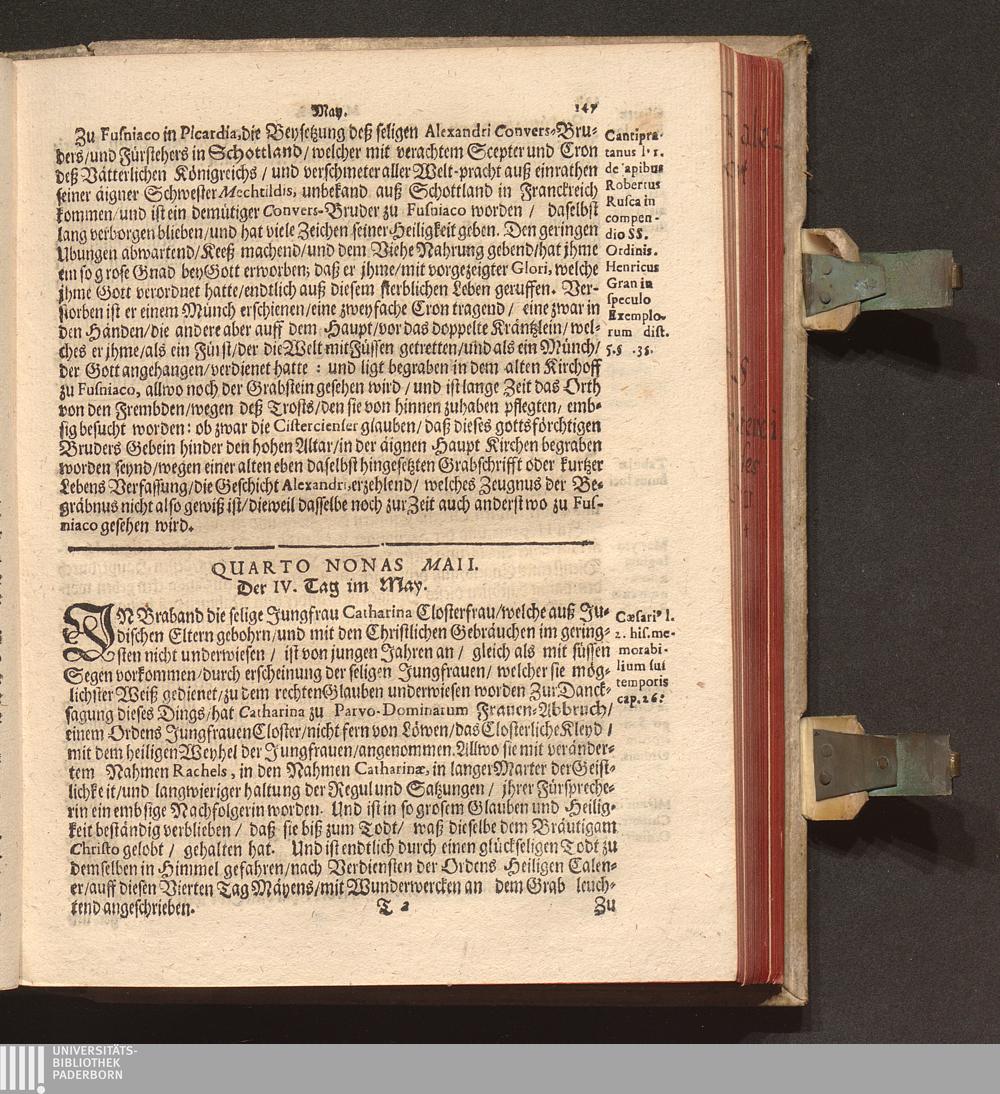 May.
147
Zu Fusniaco in Picardia, die Beysetzung deß seligen Alexandri Convers-Bru-
ders/und Fürstehers in Schottland/welcher mit verachtem Scepter und Cron
deß Vätterlichen Königreichs / und verschmeter aller Welt-pracht auß einrathen
seiner äigner Schwester Mechtildis, unbekand auß Schottland in Franckreich
kommen/und ist ein demütiger Convers-Bruder zu Fusniaco worden / daselbst
lang verborgen blieben/und hat viele Zeichen seiner Heiligkeit geben. Den geringen
Ubungen abwartend/Keeß machend/und dem Viehe Nahrung gebend/hat jhme
ein so grose Gnad bey Gott erworben; daß er jhme/mit vorgezeigter Glori, welche
jhme Gott verordnet hatte/endtlich auß diesem sterblichen Leben geruffen. Ver-
storben ist er einem Münch erschienen/eine zweyfache Cron tragend / eine zwar in
den Händen/die andere aber auff dem Haupt/vor das doppelte Kräntzlein/wel-
ches er jhme/als ein Fürst/der die Welt mit Füssen getretten/und als ein Münch/
der Gott angehangen/verdienet hatte : und ligt begraben in dem alten Kirchoff
zu Fusniaco, allwo noch der Grabstein gesehen wird / und ist lange Zeit das Orth
von den Frembden/wegen deß Trosts/den sie von hinnen zuhaben pflegten/ emb-
sig besucht worden: ob zwar die Cistercienser glauben/ daß dieses gottsförchtigen
Bruders Gebein hinder den hohen Altar/in der äignen Haupt Kirchen begraben
worden seynd/wegen einer alten eben daselbst hingesetzten Grabschrifft oder kurtzer
Lebens Verfassung/die Geschicht Alexandri erzehlend/ welches Zeugnus der Be-
gräbnus nicht also gewiß ist/dieweil dasselbe noch zur Zeit auch anderst wo zu Fus-
niaco gesehen wird.
Cantipra-
tanus l. 1.
de apibus
Robertus
Rusca in
compen-
dio SS.
Ordinis.
Henricus
Gran in
speculo
Exemplo-
rum dist.
5. § .35.
QUARTO NONAS MAII.
Der IV. Tag im May.
IN Braband die selige Jungfrau Catharina Closterfrau/welche auß Ju-
dischen Eltern gebohrn/und mit den Christlichen Gebräuchen im gering-
sten nicht underwiesen / ist von jungen Jahren an / gleich als mit süssen
Segen vorkommen/durch erscheinung der seligen Jungfrauen/ welcher sie mög-
lichster Weiß gedienet/zu dem rechten Glauben underwiesen worden Zur Danck-
sagung dieses Dings/hat Catharina zu Parvo-Dominarum Frauen-Abbruch/
einem Ordens Jungfrauen Closter/nicht fern von Löwen/das Closterliche Kleyd /
mit dem heiligen Weyhel der Jungfrauen/angenommen. Allwo sie mit veränder-
tem Nahmen Rachels, in den Nahmen Catharinæ, in langer Marter der Geist-
lichkeit/und langwieriger haltung der Regul und Satzungen / jhrer Fürspreche-
rin ein embsige Nachfolgerin worden. Und ist in so grosem Glauben und Heilig-
keit beständig verblieben / daß sie biß zum Todt/ waß dieselbe dem Bräutigam
Christo gelobt / gehalten hat. Und ist endtlich durch einen glückseligen Todt zu
demselben in Himmel gefahren/nach Verdiensten der Ordens Heiligen Calen-
er/auff diesen Vierten Tag Mäyens/mit Wunderwercken an dem Grab leuch-
tend angeschrieben.
Cæsari9 l.
2. hist. me-
morabi-
lium sui
temporis
cap. 26.
T 2
Zu
UNIVERSITÄTS-
BIBLIOTHEK
PADERBORN